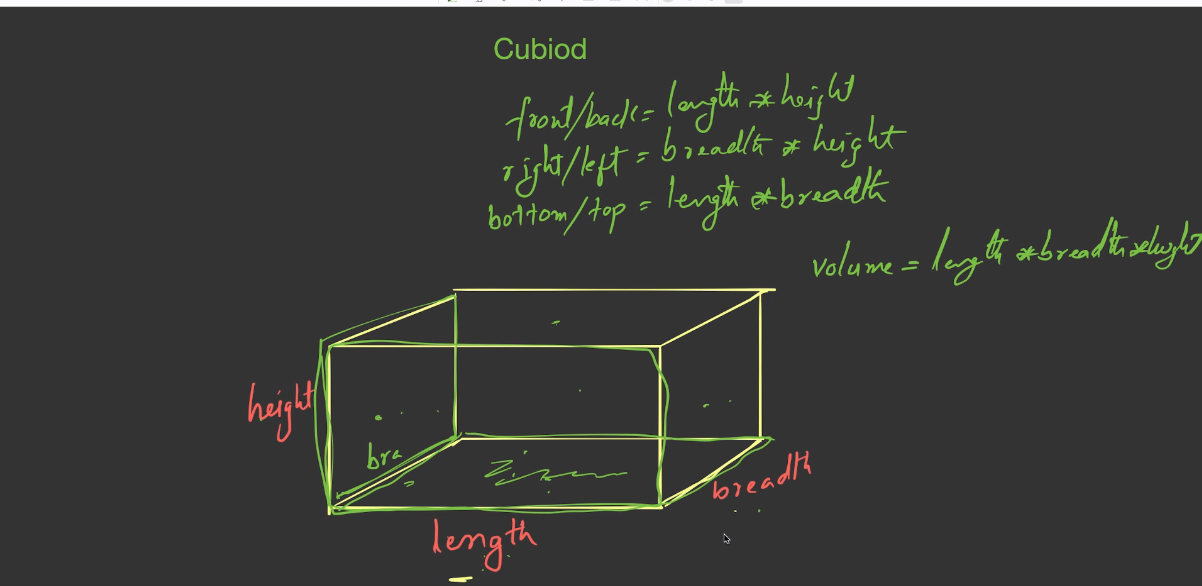 Cubiod
front/back = length * height
right/left = breadth * height
bottom/top = length * breadth
volume = length * breadth * height
height
bra
breadth
length